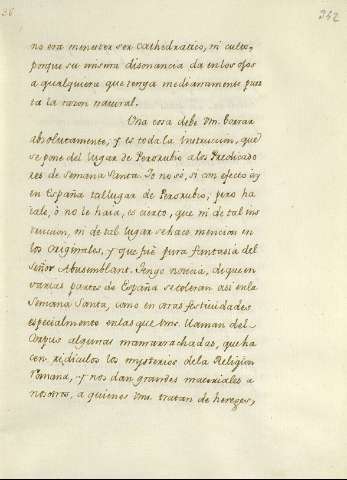 36
242
no era menester ser Cathedratico, ni culto,
porque su misma disonancia da en los ojos
a qualquiera que tenga medianamente pues
ta la razon natural.
Una cosa debe Vm. borrar
absolutamente, y es toda la Instruccion, que
se pone del lugar de Perorubio a los Predicado
res de Semana Santa. Yo no sé, si con efecto ay
en España tal lugar de Perorubio, pero ha
iale, ò no le haia, es cierto, que ni de tal ins
truccion, ni de tal lugar se hace mencion en
los Originales, y que fuè pura fantasia del
Señor Abusemblant. Tengo noticia, de que en
varias partes de España se celebran asi en la
Semana Santa, como en otras festividades
especialmente en las que Vms. llaman del
Corpus algunas mamarrachadas, que ha
cen ridiculos los mysterios de la Religion
Romana, y nos dan grandes materiales a
nosotros, a quienes Vms. tratan de hereges,